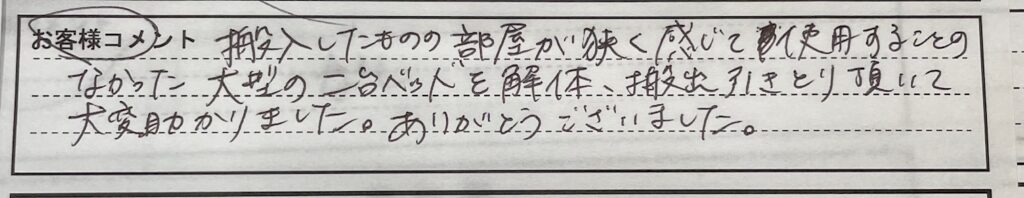 お客様コメント 搬入したものの部屋が狭く感じて使用することの
なかった大型の二台ベッドを解体、搬出引きとり頂いて
大変助かりました。ありがとうございました。